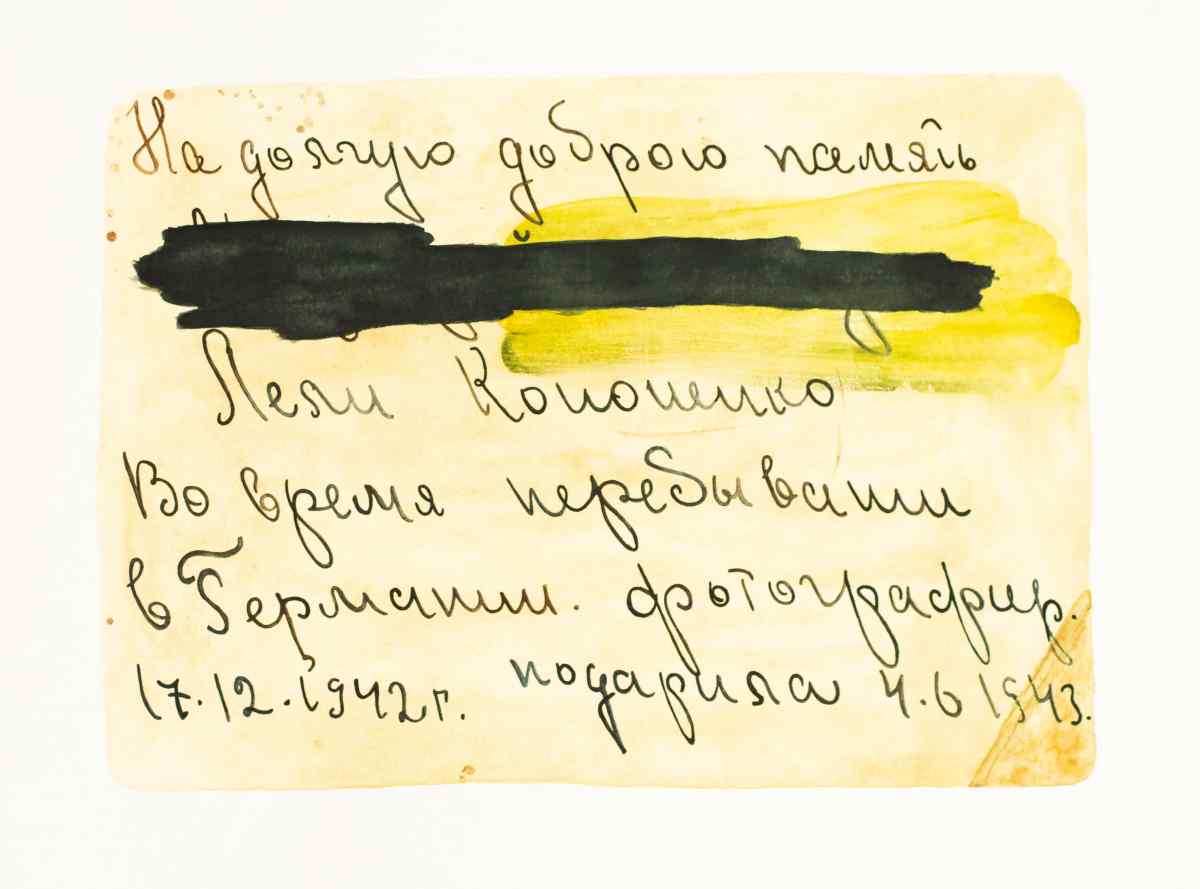 На долгую доброю память
Лели Кононенко
Во время перебывании
в Германии. фотографир.
17.12.1942г. подарила 4.6 1943.